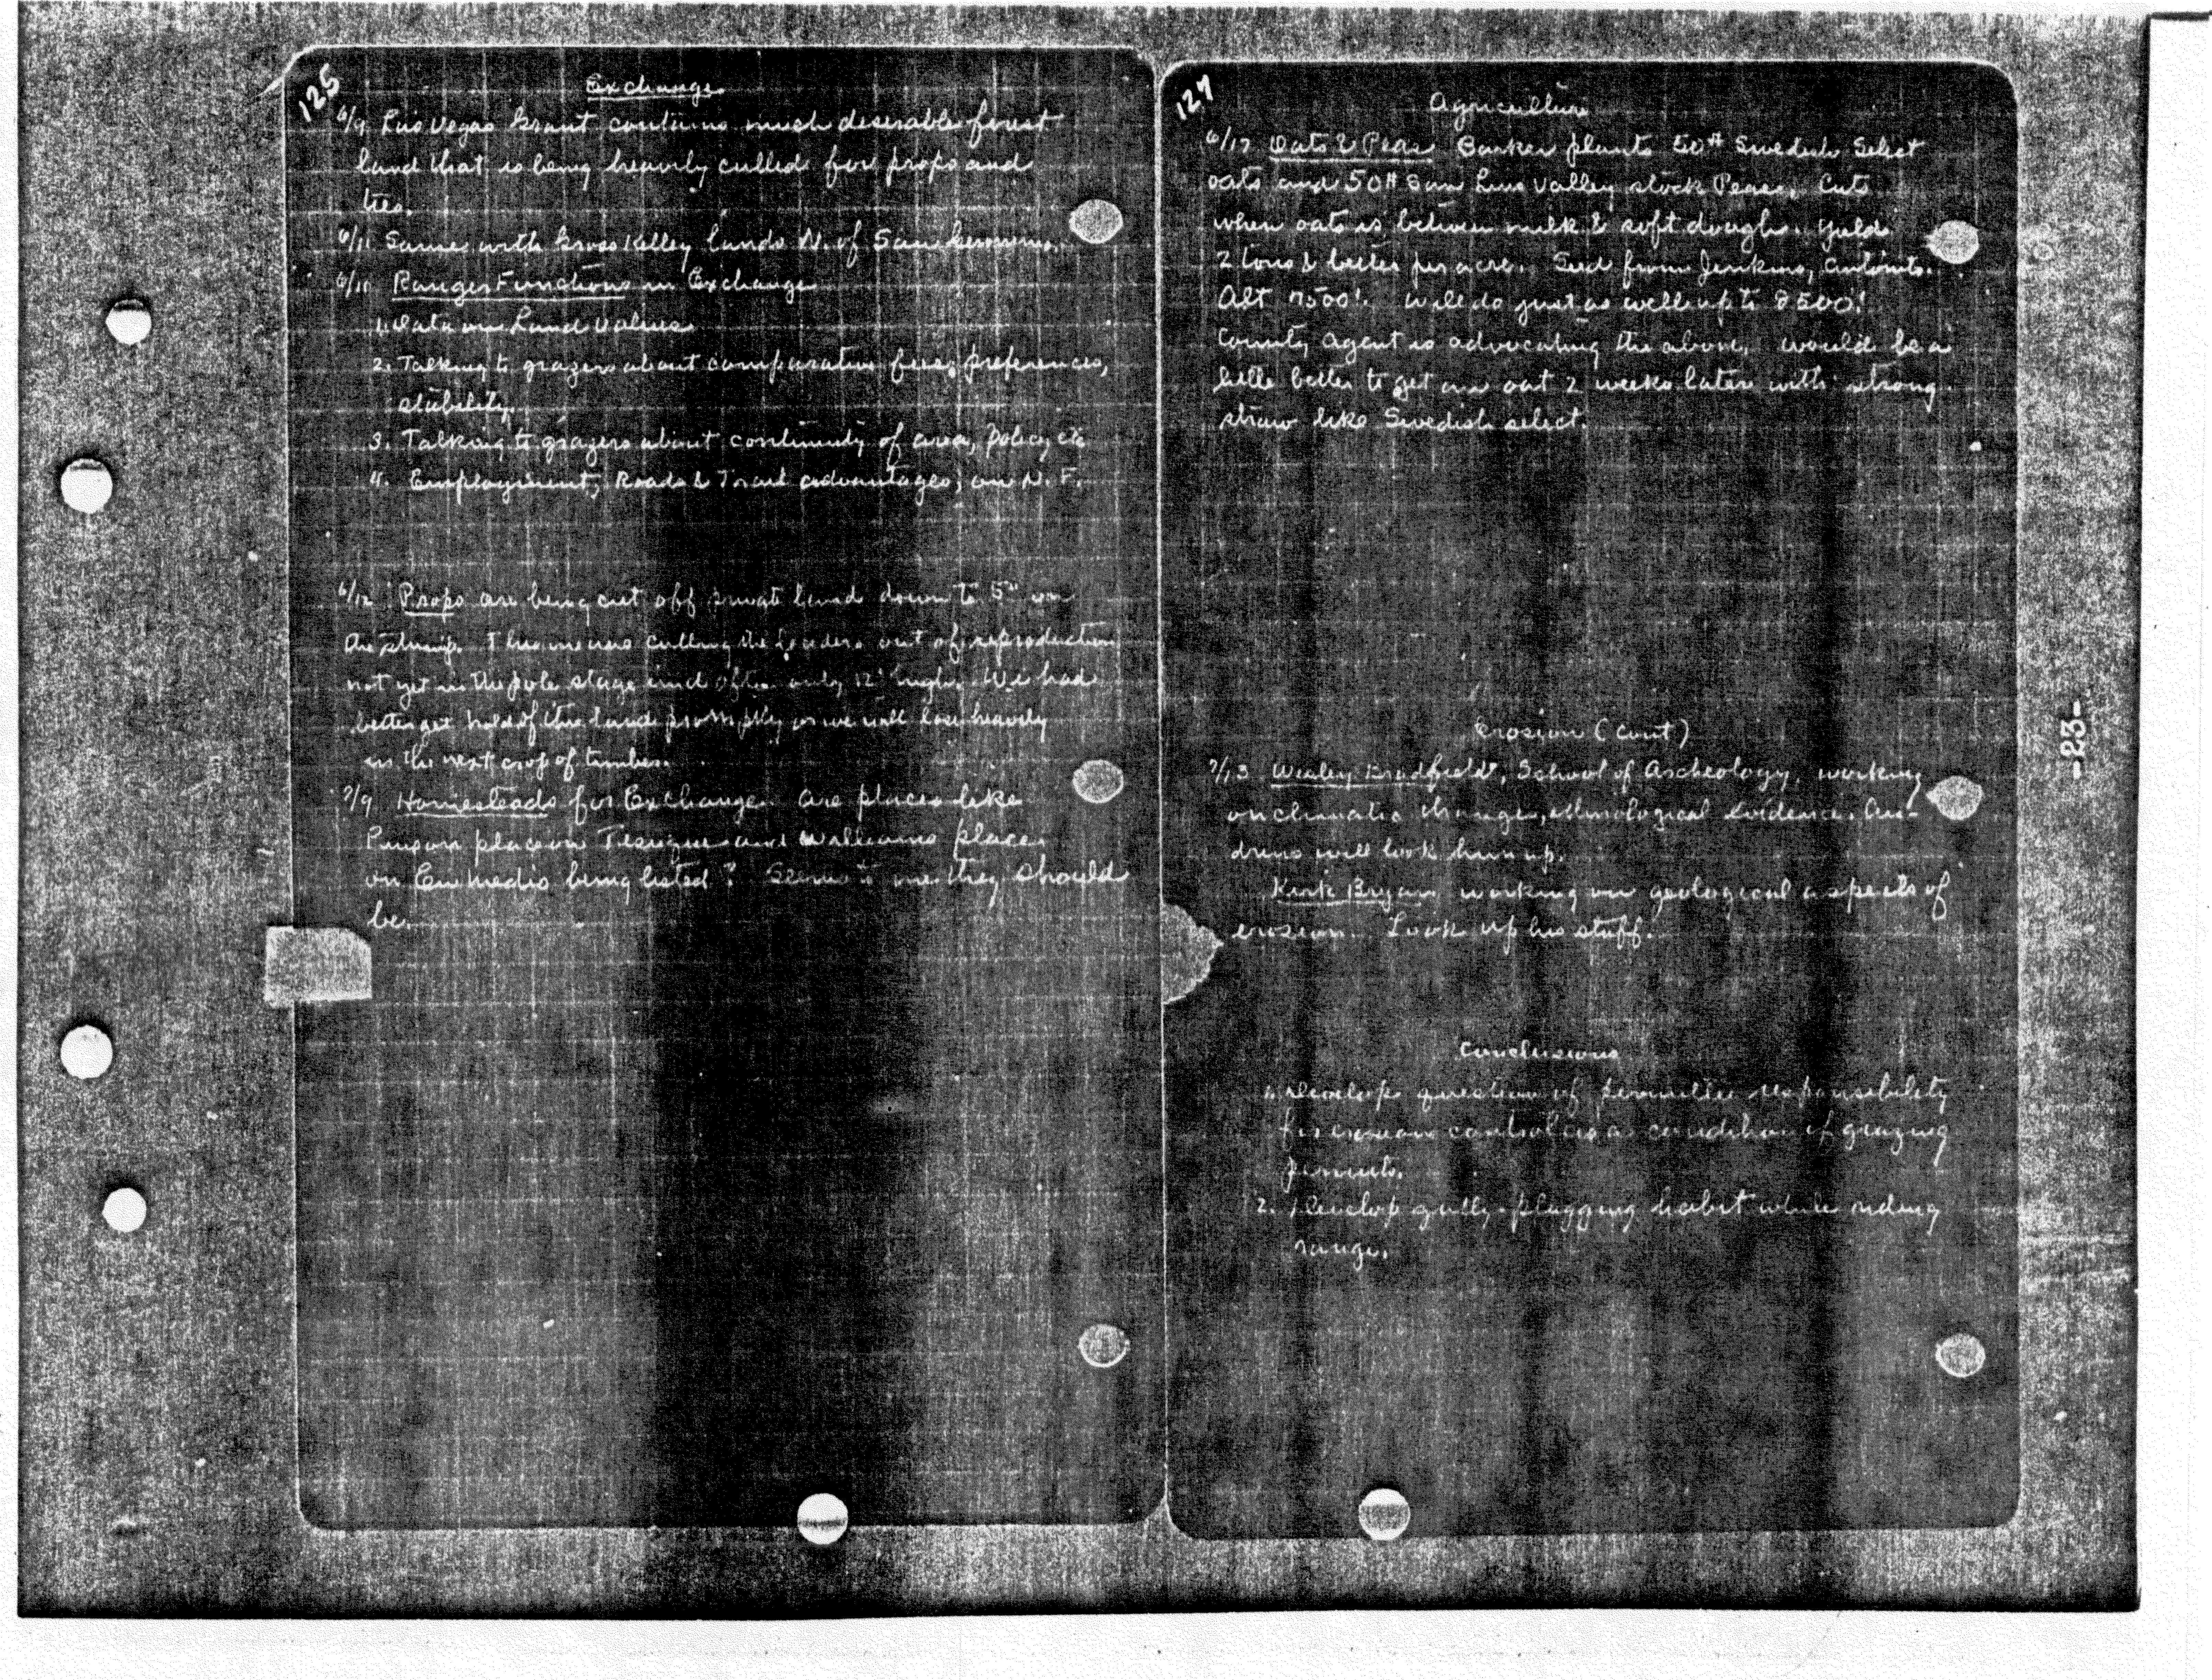 125
Exchange
6/9 Las Vegas Grant contains much desirable forest
land that is being heavily culled for props and
ties.
6/11 Same with Gross Kelley lands N. of San
6/11 Ranger Functions in Exchange
1. Data on Land Values
2. Talking to grazers about comparative fees, preferences,
stability.
3. Talking to grazers about continuity of area, policy etc
4. Employment, Roads & Trail advantages, on N. F.
6/12 Props are being cut off private land down to 5" on
the stump. This means culling the leaders out of reproduction
not yet in the pole stage and often only 12' high. We had
better get hold of this land promptly or we will lose heavily
in the next crop of timber.
7/9 Homesteads for Exchange. Are places like
place on Tesuque and Williams place
on En medio being listed? Seems to me they should
be.
127
Agriculture
6/17 Oats & Peas Barker plants 50# Swedish Select
oats and 50# San Luis Valley stock Peas. Cuts
when oats is between milk & soft dough. Yields
2 tons & better per acre. Seed from Jenkins,
Alt 7500'. Will do just as well up to 8500'.
County Agent is advocating the above. Would be a
little better to get an oat 2 weeks later with strong
straw like Swedish select.
Erosion (cont)
7/13 Wesley Bradfield, School of Archeology, working
on climatic changes, ethnological evidence. An-
drews will look him up.
Kirk Bryan working on geological aspects of
erosion. Look up his stuff.
Conclusions
1. Develop question of permittee responsibility
for erosion control as a condition of grazing
permits.
2. Develop gully-plugging habit while riding
range.
-23-